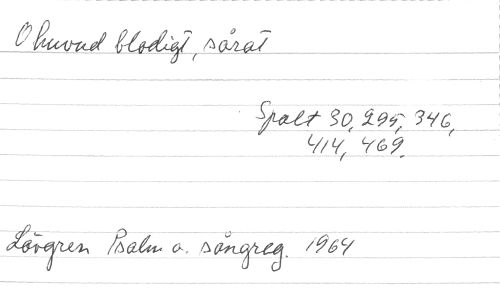 O huvud blodigt, sårat
Spalt 30, 295, 346,
414, 469.
Lövgren Psalm o. sångreg. 1964